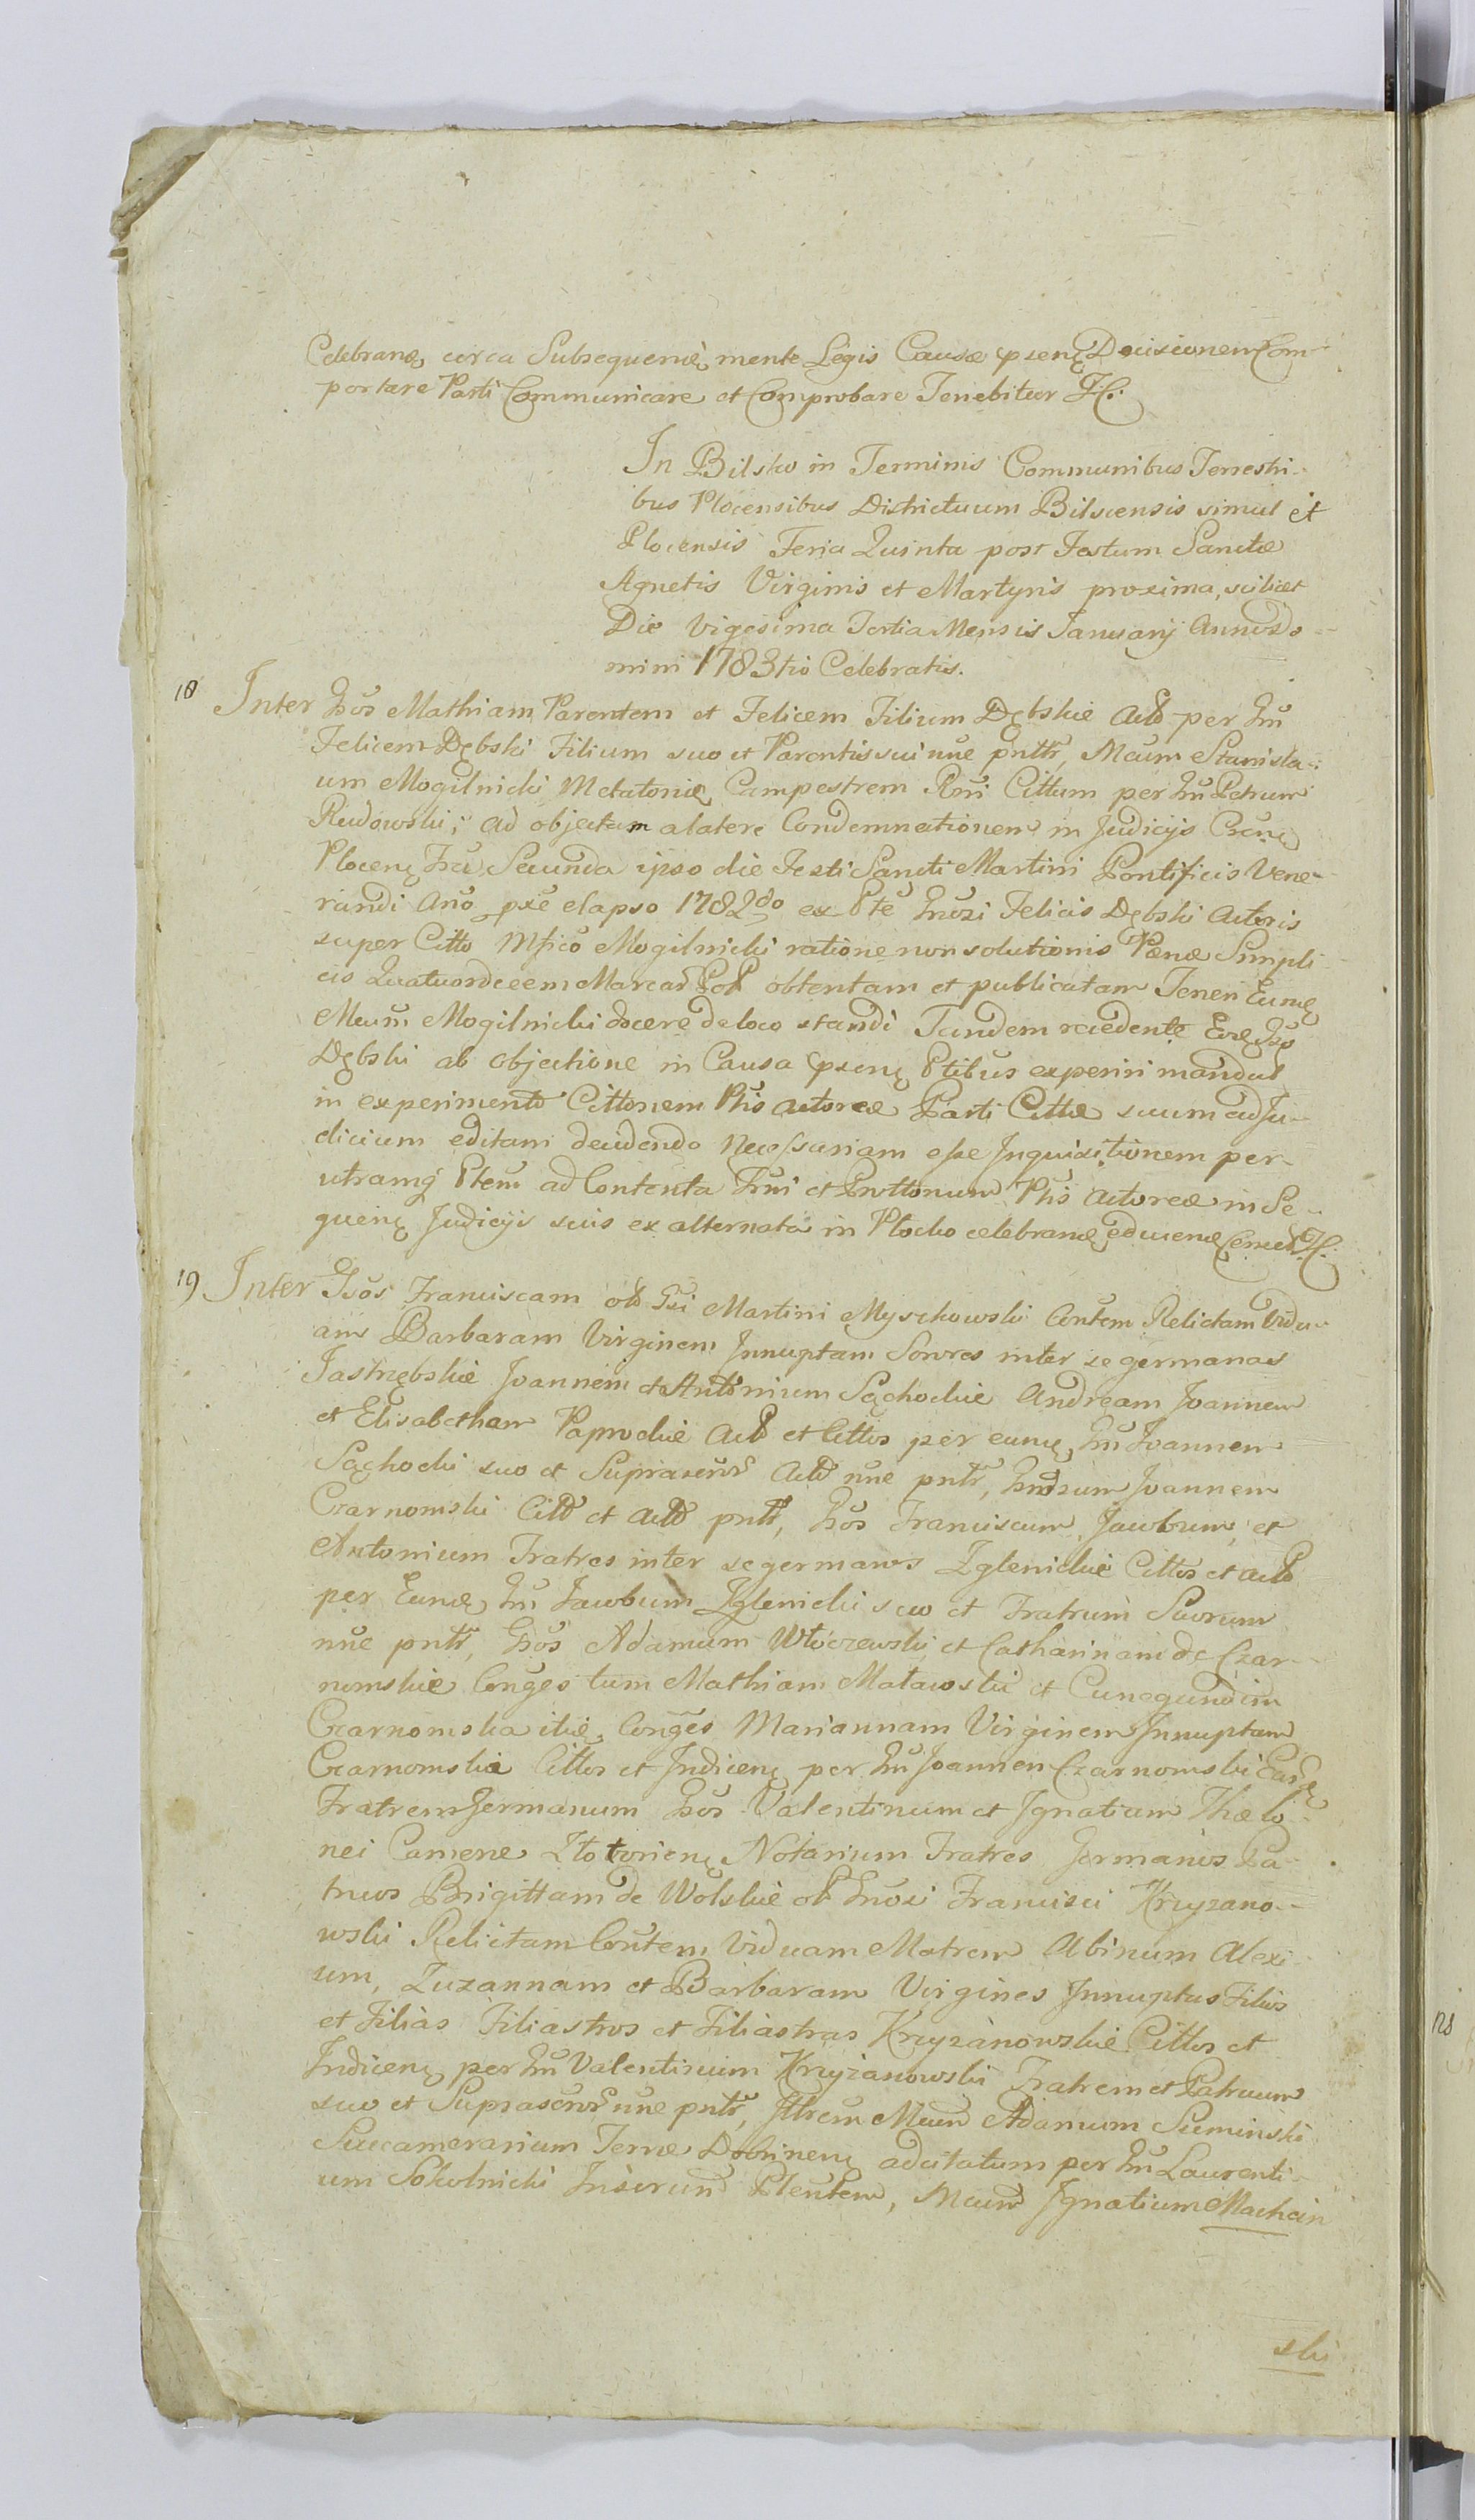 Celebranę circa Subsequenę mente Legis Causæ præsenę Decisionem Com-
portare Parti Communicare et Comprobare Tenebitur
In Bilsko in Terminis Communibus Terrestri-
bus Plocensibus Districtuum Bilscensis simul et
Plocensis Feria Quinta post Festum Sanctæ
Agnetis Virginis et Martyris proxima, scilicet
Die Vigesima Tertia Mensis Januarij Anno Do-
mini 1783tio Celebratis.
18 Inter Gsos Mathiam Parentem et Felicem Filium Dębskie Actō per Gm
Felicem Dębski Filium suo et Parentis sui nne pnttr, Mcum Stanisla-
um Mogilnicki Metatorię Campestrem Rni Cittum per Gm Petrum
Rudowski; ad objectam a latere Condemnationem in Judicijs
Plocenę Fria Secunda ipso die Festi Sancti Martini Pontificis Vene-
randi Anō prē elapso 1782do ex Pte Gnrosi Felicis Dębski Actoris
super Citto Mfico Mogilnicki ratione non solutionis Pænæ Simpli-
cis Quatuordecem Marcar Pol obtentam et publicatam Teneri Eunę
Mcum Mogilnicki docere de loco standi Tandem recedente
Dębski ab objectione in Causa præsenę Ptibus experiri mandat
in experimento Cittonem Ptis actoreæ Parti Cittæ suum ad Ju-
dicium editam decidendo Necessariam esse Inquisitionem per
utramq Ptem ad Contenta et Prottonum Ptis Actoreæ in Se-
quenę Judicijs suis ex alternata in Plocko celebranę educenę
19 Inter Gsos Franciscam olim Gsi Martini Myszkowski Contem Relictam Vidu-
am Barbaram Virginem Innuptam Sorores inter se germanas
Jastrzębskie Joannem et Antonium Sąchockie Andream Joannem
et Elisabetham Paprockie Actō et Cittos per eunę Gm Joannem
Sąchocki suo et Suprascrōr Actō nne pnttr, Gnrosum Joannem
Czarnomski Cittō et Actō pnttr, Gsos Franciscum, Jacobum, et
Antonium Fratres inter se germanos Zglenickie Cittos et actō
per Eunę Gm Jacobum Zglenicki suo et Fratrum Suorum
nne pnttr, Gsos Adamum Włoczewski et Catharinam de Czar-
nomskie Conges tum Mathiam Matawski et Cunegundim
Czarnomska itię Conges Mariannam Virginem Innuptam
Czarnomskie Cittos et Indicenę per Gm Joannem Czarnomski
Fratrem Germanum Gsos Valentinum et Ignatium Thælo-
nei Cameræ Złotorienę Notarium Fratres Germanos Pa-
truos Brigittam de Wolskie olim Gnrosi Francisci Krzyzano-
wski Relictam Contem Viduam Matrem Albinum Alexi-
um, Zuzannam et Barbaram Virgines Innuptas Filios
et Filias Filiastros et Filiastras Krzyżanowskie Cittos et
Indicenę per Gm Valentinum Krzyżanowski Fratrem et Patruum
suo et Suprascrōr nne pnttr, Illrem Mcum Adamum Sumiński
Succamerarium Terræ Dobrinenę adcitatum per Gm Laurenti-
um Sokolnicki, Mcum Ignatium Machciń
ski